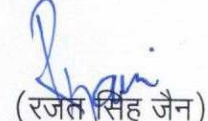 (रजत सिंह जैन)